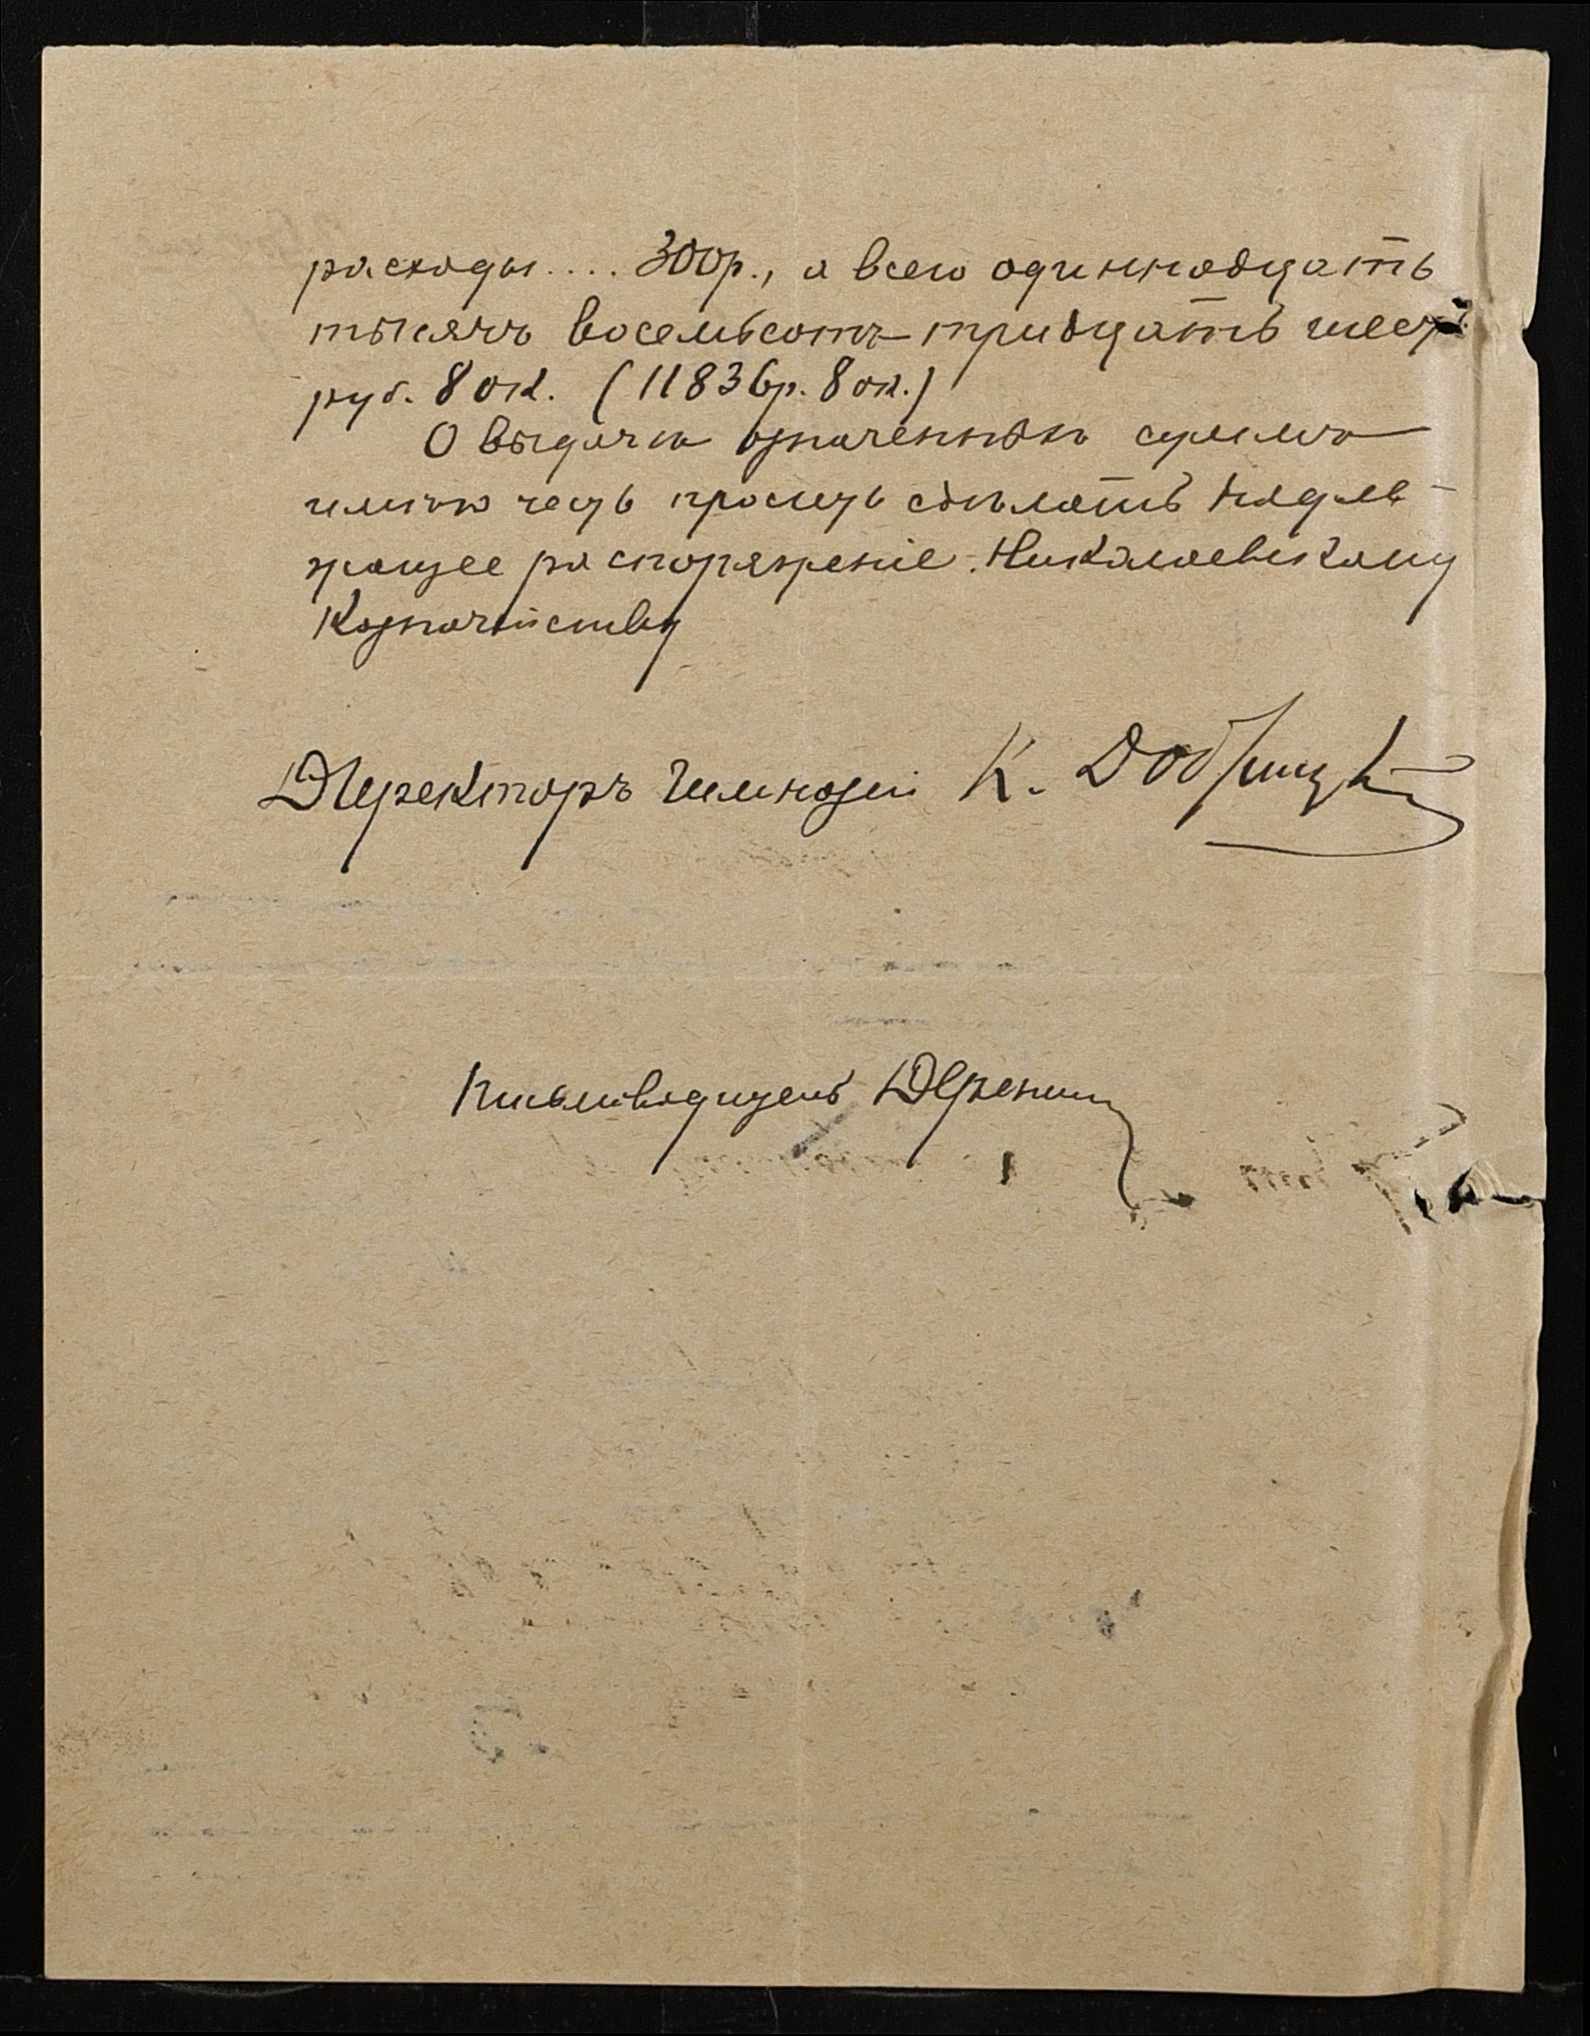 расходы.... 300р., а всего одиннадцать
тысячъ восемьсотъ тридцать шесть
руб. 80к. (11836р. 80к.)
О выдачѣ означенныхъ суммъ
имѣю честь просить сдѣлать надле-
жащее распоряженіе Николаевскому
Казначейству
Директоръ Гимназіи К. Добрицкій
Письмоводитель